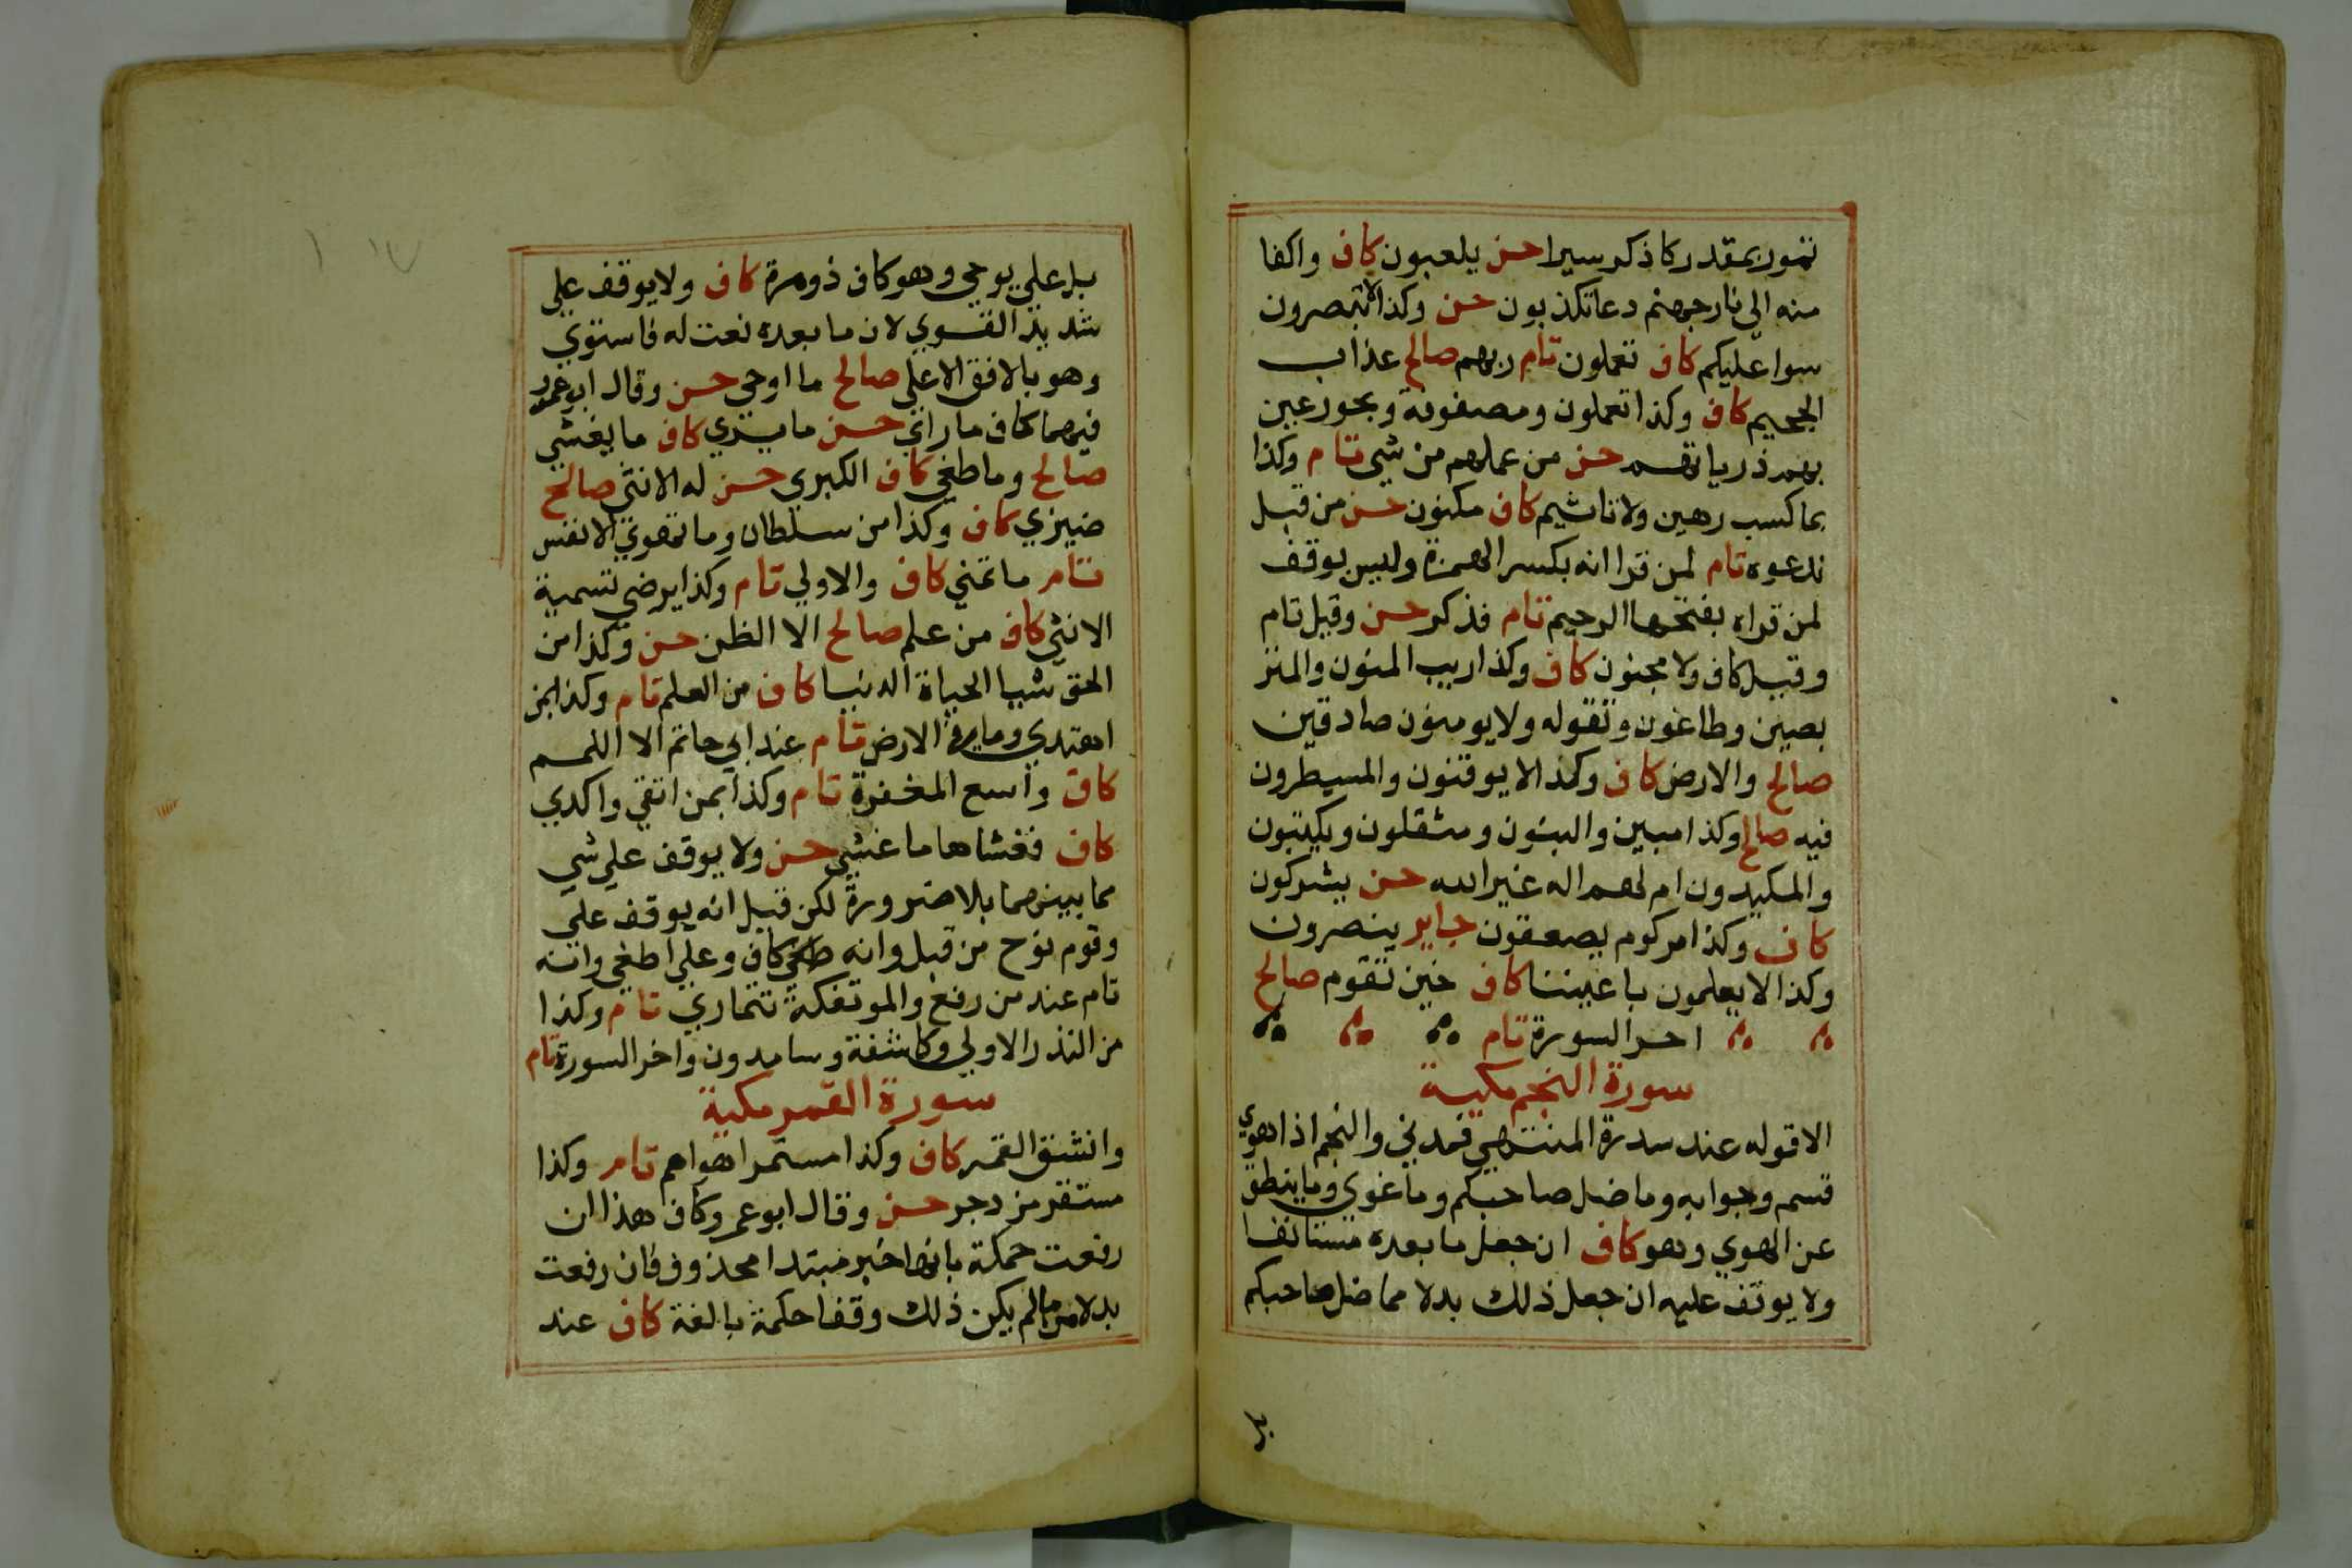 تمور بمقدر كا ذكر سيرا حسن يلعبون كاف واكفا
منه الى نار جهنم دعا تكذبون حسن وكذا لا تبصرون
سوا عليكم كاف تعملون تام ربهم صالح عذاب
الجحيم كاف وكذا تعملون ومصفوفة وبحور عين
بهم ذرياتهم حسن من عملهم من شي تام وكذا
بما كسب رهين ولا تاثيم كاف مكنون حسن من قبل
ندعوه تام لمن قرا انه بكسر الهمزة وليس بوقف
لمن قراه بفتحها الرحيم تام فذكر حسن وقيل تام
وقيل كاف ولا مجنون كاف وكذا ريب المنون والمتر
بصين وطاغون وتقوله ولا يومنون صادقين
صالح والارض كاف وكذا لا يوقنون والمسيطرون
فيه صالح وكذا مبين والبنون ومثقلون ويكتبون
والمكيدون ام لهم اله غير الله حسن يشركون
كاف وكذا مركوم يصعقون جايز ينصرون
وكذا لا يعلمون باعيننا كاف حين تقوم صالح
اخر السورة تام
سورة النجم مكية
الا قوله عند سدرة المنتهي فمدني والنجم اذا هوي
قسم وجوابه وما ضل صاحبكم وما غوي وما ينطق
عن الهوي وهو كاف ان جعل ما بعده مستانفا
ولا يوقف عليه ان جعل ذلك بدلا مما ضل صاحبكم
بل
بل علي يوحي وهو كاف ذو مرة كاف ولا يوقف علي
شديد القوي لان ما بعده نعت له فاستوي
وهو بالافق الاعلي صالح ما اوحي حسن وقال ابو عمرو
فيهما كاف ما راي حسن ما يري كاف ما يغشي
صالح وما طغي كاف الكبري حسن له الانثي صالح
ضيزي كاف وكذا من سلطان وما تهوي الانفس
تام ما تمني كاف والاولي تام وكذا يرضي تسمية
الانثي كاف من علم صالح الا الظن حسن وكذا من
الحق شيا الحياة الدنيا كاف من العلم تام وكذا بمن
اهتدي وما في الارض تام عند ابي حاتم الا اللمم
كاف واسع المغفرة تام وكذا بمن اتقي واكدي
كاف فغشاها ما غشي حسن ولا يوقف علي شي
مما بينهما بلا ضرورة لكن قيل انه يوقف علي
وقوم نوح من قبل وانه كاف وعلي اطغي وانه
تام عند من رفع والموتفكة تتماري تام وكذا
من النذر الاولي وكاشفة وسامدون واخر السورة تام
سورة القمر مكية
وانشق القمر كاف وكذا مستمر اهواهم تام وكذا
مستقر مزدجر حسن وقال ابو عمرو كاف هذا ان
رفعت حمكة بانها خبر مبتدا محذوف فان رفعت
بدلا من ما لم يكن ذلك وقفا حكمة بالغة كاف عند